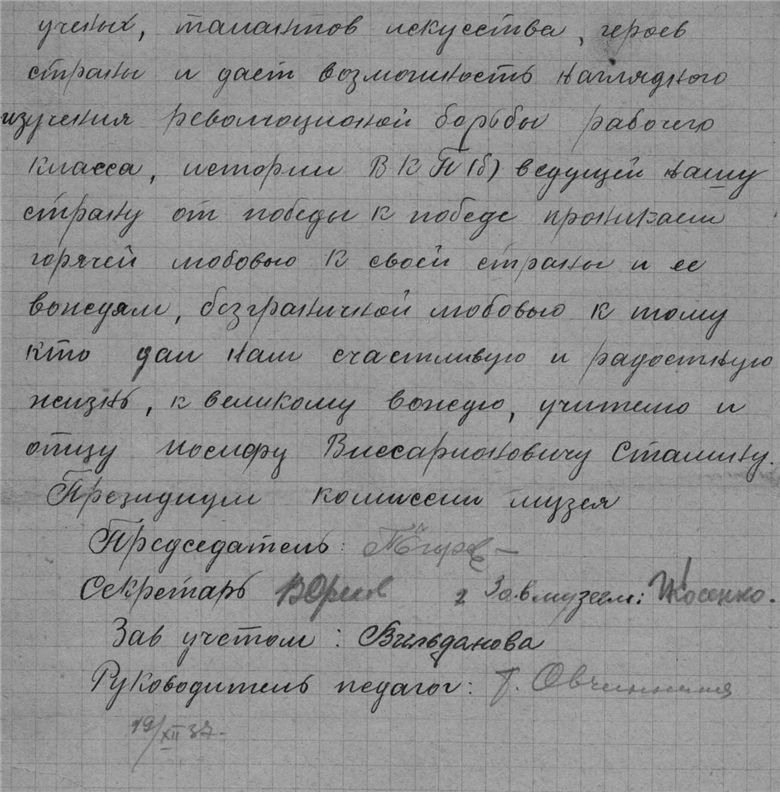 ученых, талантов искусства, героев
страны и дает возможность наглядного
изучения революционой борьбы рабочего
класса, истории ВКП(б) ведущей нашу
страну от победы к победе проникаем
горячей любовью к своей страны и ее
вождям, безграничной любовью к тому
кто дал нам счастливую и радостную
жизнь, к великому вождю, учителю и
отцу Иосифу Виссарионовичу Сталину.
Президиум комиссии музея
Председатель:
Секретарь Зав.музеем: Косенко.
Зав учетом: Вильданова
Руководитель педагог: Овчинникова
19/XII 37-